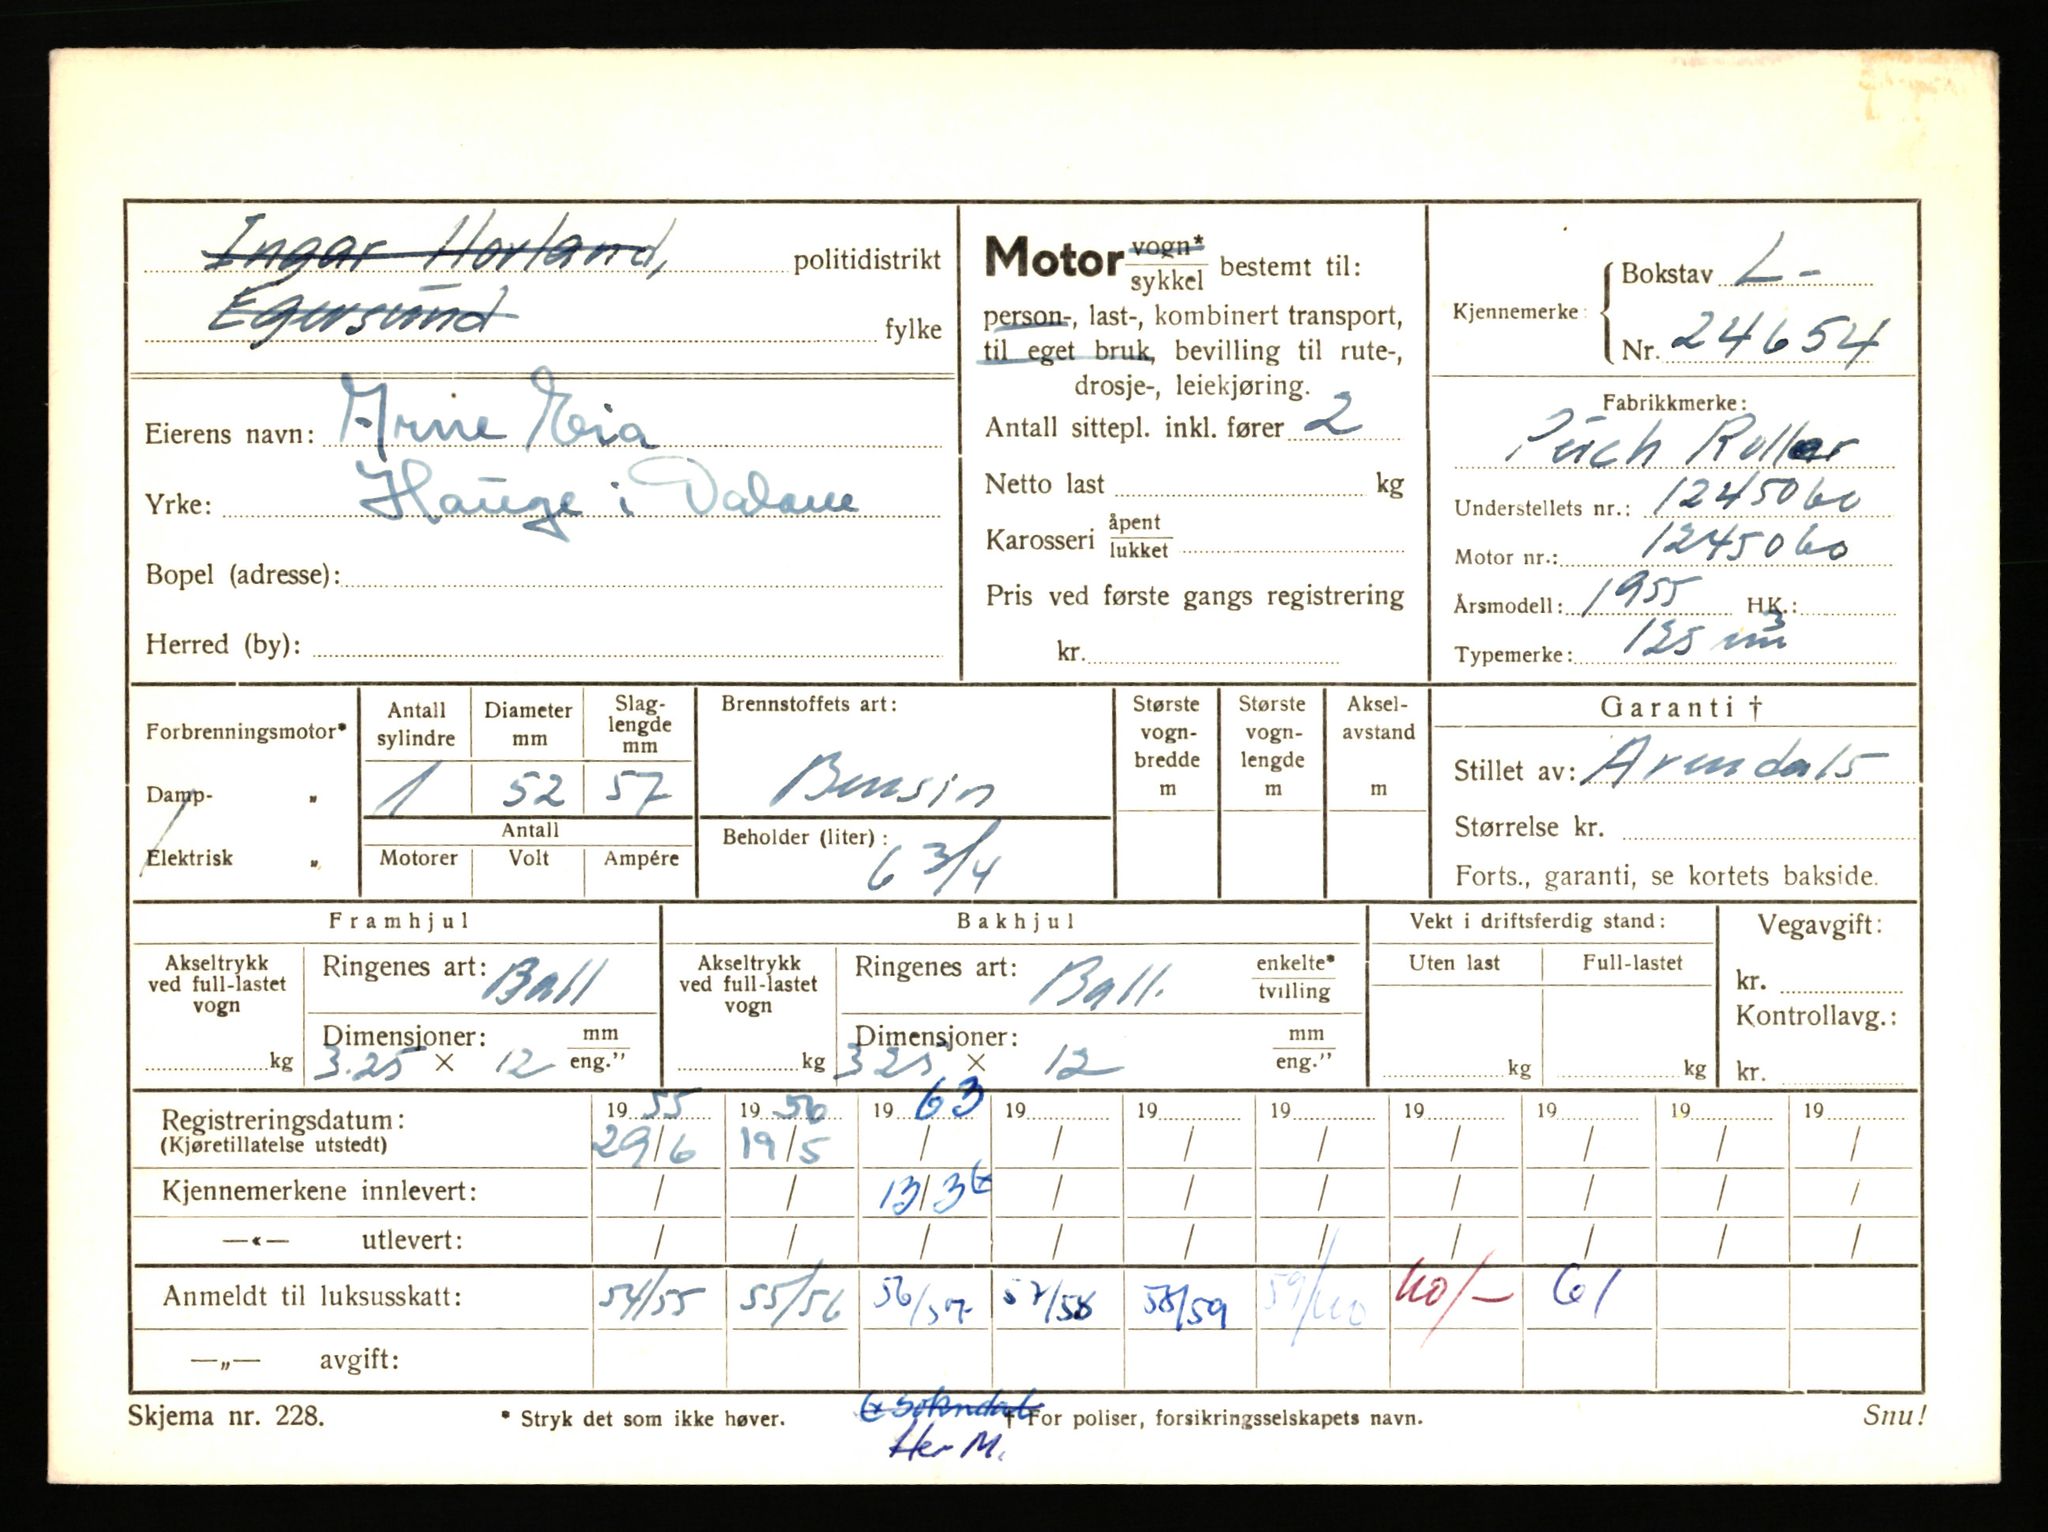 Ingar Hovland, politidistrikt
Egersund fylke
Eierens navn: Arne Eia
Yrke: Hauge i Dalane
Bopel (adresse):
Herred (by):
Motor vogn* / sykkel bestemt til:
person-, last-, kombinert transport,
til eget bruk, bevilling til rute-,
drosje-, leiekjøring.
Antall sittepl. inkl. fører 2
Netto last kg
Karosseri åpent / lukket
Pris ved første gangs registrering
kr.
Kjennemerke: Bokstav L-
Nr. 24654
Fabrikkmerke:
Püch Roller
Understellets nr.: 1245060
Motor nr.: 1245060
Årsmodell: 1955 HK.:
Typemerke: 125 m³
Forbrenningsmotor*
Damp- „
Elektrisk „
Antall sylindre Diameter mm Slag-lengde mm
1 52 57
Antall
Motorer Volt Ampére
Brennstoffets art:
Bensin
Beholder (liter):
6 3/4
Største vogn-bredde m
Største vogn-lengde m
Aksel-avstand m
Garanti †
Stillet av: Arendals
Størrelse kr.
Forts., garanti, se kortets bakside.
Framhjul
Akseltrykk ved full-lastet vogn kg
Ringenes art: Ball
Dimensjoner: mm / eng.”
3.25 × 12
Bakhjul
Akseltrykk ved full-lastet vogn kg
Ringenes art: Ball. enkelte* / tvilling
Dimensjoner: mm / eng.”
325 × 12
Vekt i driftsferdig stand:
Uten last Full-lastet
kg kg
Vegavgift:
kr.
Kontrollavg.:
kr.
Registreringsdatum: 19 55 19 56 19 63 19 19 19 19 19 19 19
(Kjøretillatelse utstedt) 29/6 19/5 / / / / / / / /
Kjennemerkene innlevert: / / 13/3 / / / / / / /
—«— utlevert: / / / / / / / / / /
Anmeldt til luksusskatt: 54/55 55/56 56/57 57/58 58/59 59/60 60/— 61
—„— avgift:
Skjema nr. 228. * Stryk det som ikke høver. Sokndal † For poliser, forsikringsselskapets navn. Snu!
Her M.